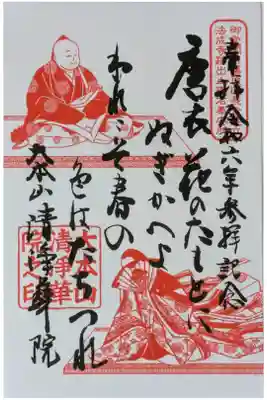 奉拝 令和六年参拝記念
唐衣 花のたもとに
ぬぎかへよ
われこそ春の
色はたちつれ
本山 清浄華院
大本山
清浄華
院之印